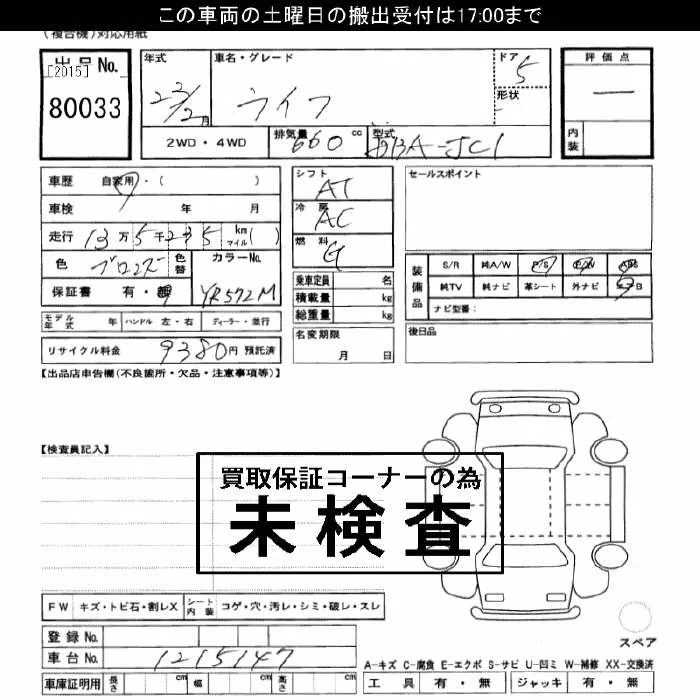 この車両の土曜日の搬出受付は17:00まで
(複合機)対応用紙
出品No. [2015] 80033
年式 22/2月 車名・グレード ライフ ドア 5 形状
評価点 ー 内装
2WD・4WD 排気量 660 cc 型式 DBA-JC1
車歴 自家用・( )
車検 年 月
走行 13万5千235 km マイル( )
色 ブロンズ 色替 カラーNo. YR572M
保証書 有・無
シフト AT
冷房 AC
燃料 G
乗車定員 名
積載量 kg
総重量 kg
セールスポイント
装備品 S/R 純A/W P/S P/W ABS
純TV 純ナビ 革シート 外ナビ エアB
ナビ型番:
モデル年式 年 ハンドル 左・右 ディーラー・並行
名変期限 月 日
後日品
リサイクル料金 9380円 預託済
【出品店申告欄(不良箇所・欠品・注意事項等)】
【検査員記入】
買取保証コーナーの為
未検査
FW キズ・トビ石・割レX シート内装 コゲ・穴・汚レ・シミ・破レ・スレ
登録No.
車台No. 1215147
スペア
A-キズ C-腐食 E-エクボ S-サビ U-凹ミ W-補修 XX-交換済
車庫証明用 長さ cm 幅 cm 高さ cm
工具 有・無 ジャッキ 有・無